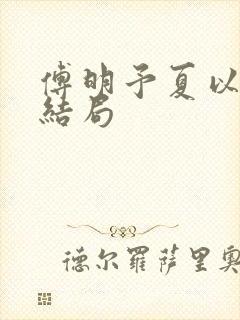 傅明予夏以
結局
德尔羅萨里奧